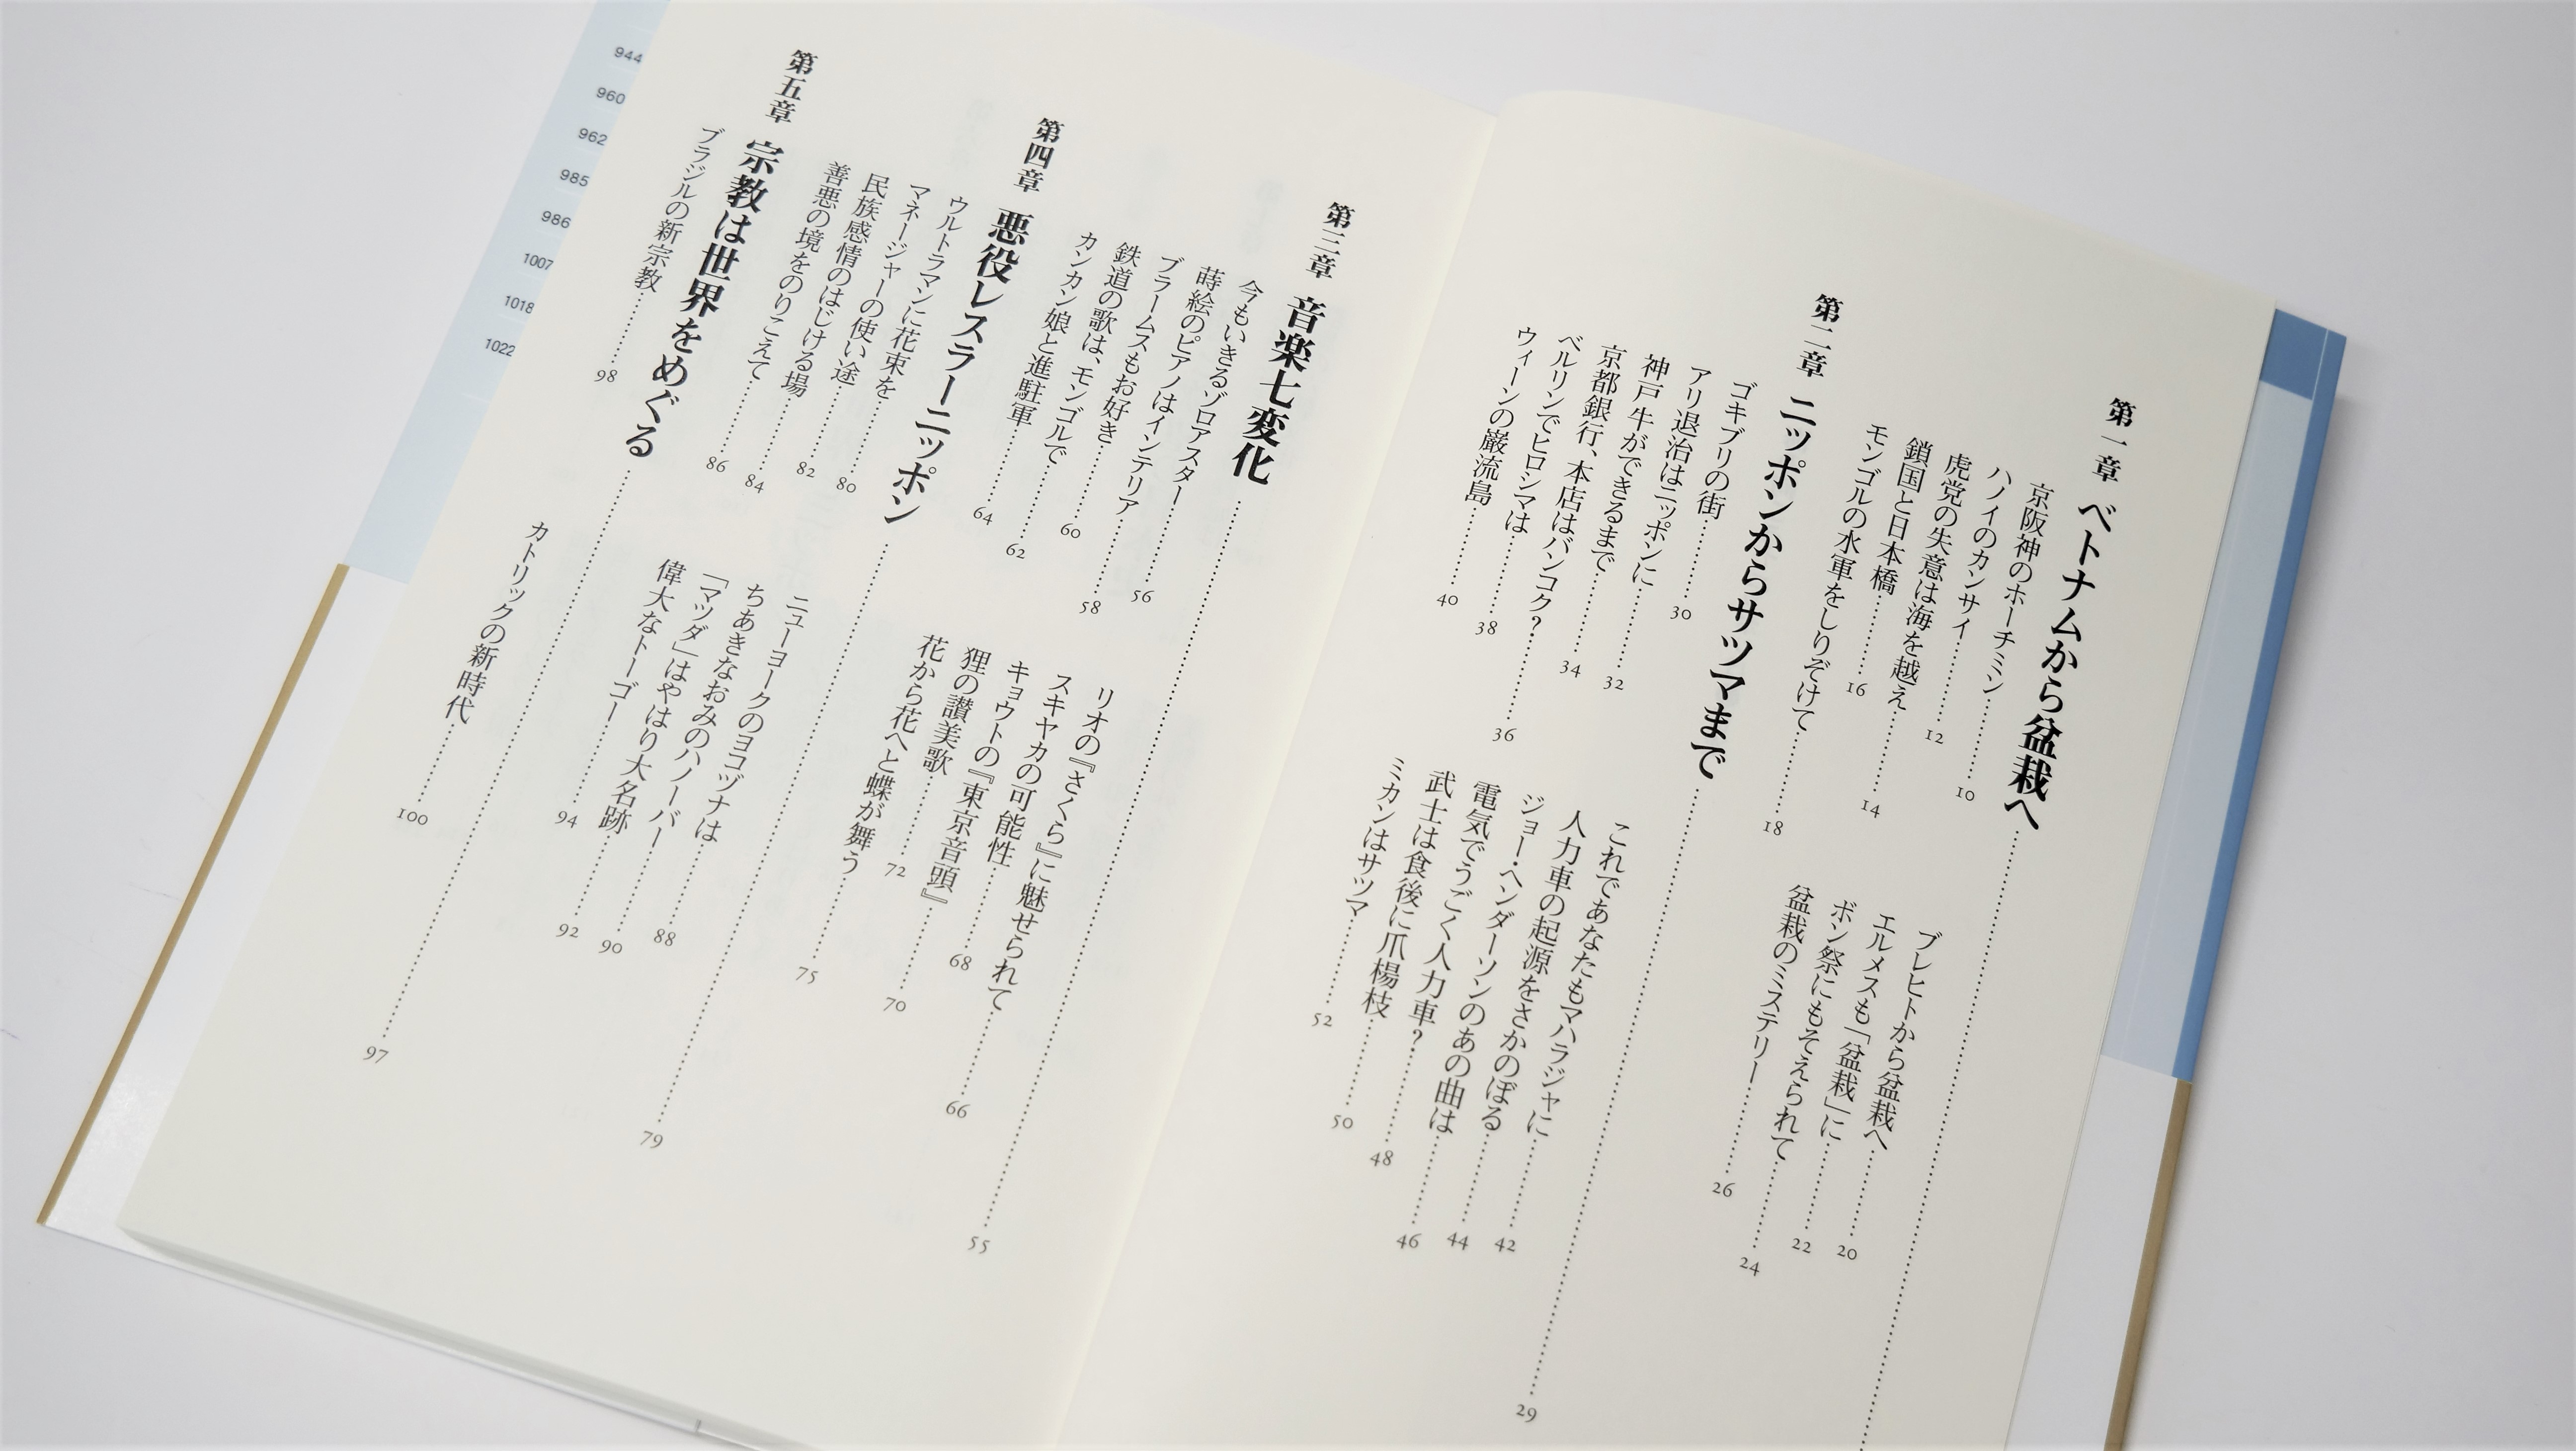 第一章 ベトナムから盆栽へ
京阪神のホーチミン 10
ハノイのカンサイ 12
虎党の失意は海を越え 14
鎖国と日本橋 16
モンゴルの水軍をしりぞけて 18
ブレヒトから盆栽へ 20
エルメスも「盆栽」に 22
ボン祭にもそえられて 24
盆栽のミステリー 26
第二章 ニッポンからサツマまで 29
ゴキブリの街 30
アリ退治はニッポンに 32
神戸牛ができるまで 34
京都銀行、本店はバンコク? 36
ベルリンでヒロシマは 38
ウィーンの巌流島 40
これであなたもマハラジャに 42
人力車の起源をさかのぼる 44
ジョー・ヘンダーソンのあの曲は 46
電気でうごく人力車? 48
武士は食後に爪楊枝 50
ミカンはサツマ 52
第三章 音楽七変化 55
今もいきるゾロアスター 56
蒔絵のピアノはインテリア 58
ブラームスもお好き 60
鉄道の歌は、モンゴルで 62
カンカン娘と進駐軍 64
リオの『さくら』に魅せられて 66
スキヤカの可能性 68
キョウトの『東京音頭』 70
狸の讃美歌 72
花から花へと蝶が舞う 75
第四章 悪役レスラーニッポン 79
ウルトラマンに花束を 80
マネージャーの使い途 82
民族感情のはじける場 84
善悪の境をのりこえて 86
ニューヨークのヨコヅナは 88
ちあきなおみのハノーバー 90
「マツダ」はやはり大名跡 92
偉大なトーゴー 94
第五章 宗教は世界をめぐる 97
ブラジルの新宗教 98
カトリックの新時代 100
944
960
962
985
986
1007
1018
1022